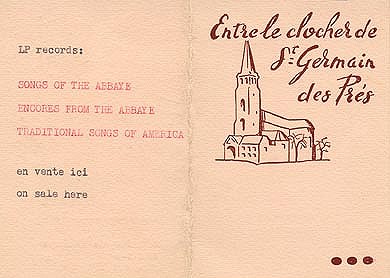 LP records:
SONGS OF THE ABBAYE
ENCORES FROM THE ABBAYE
TRADITIONAL SONGS OF AMERICA
en vente ici
on sale here
Entre le clocher de
St Germain
des Prés